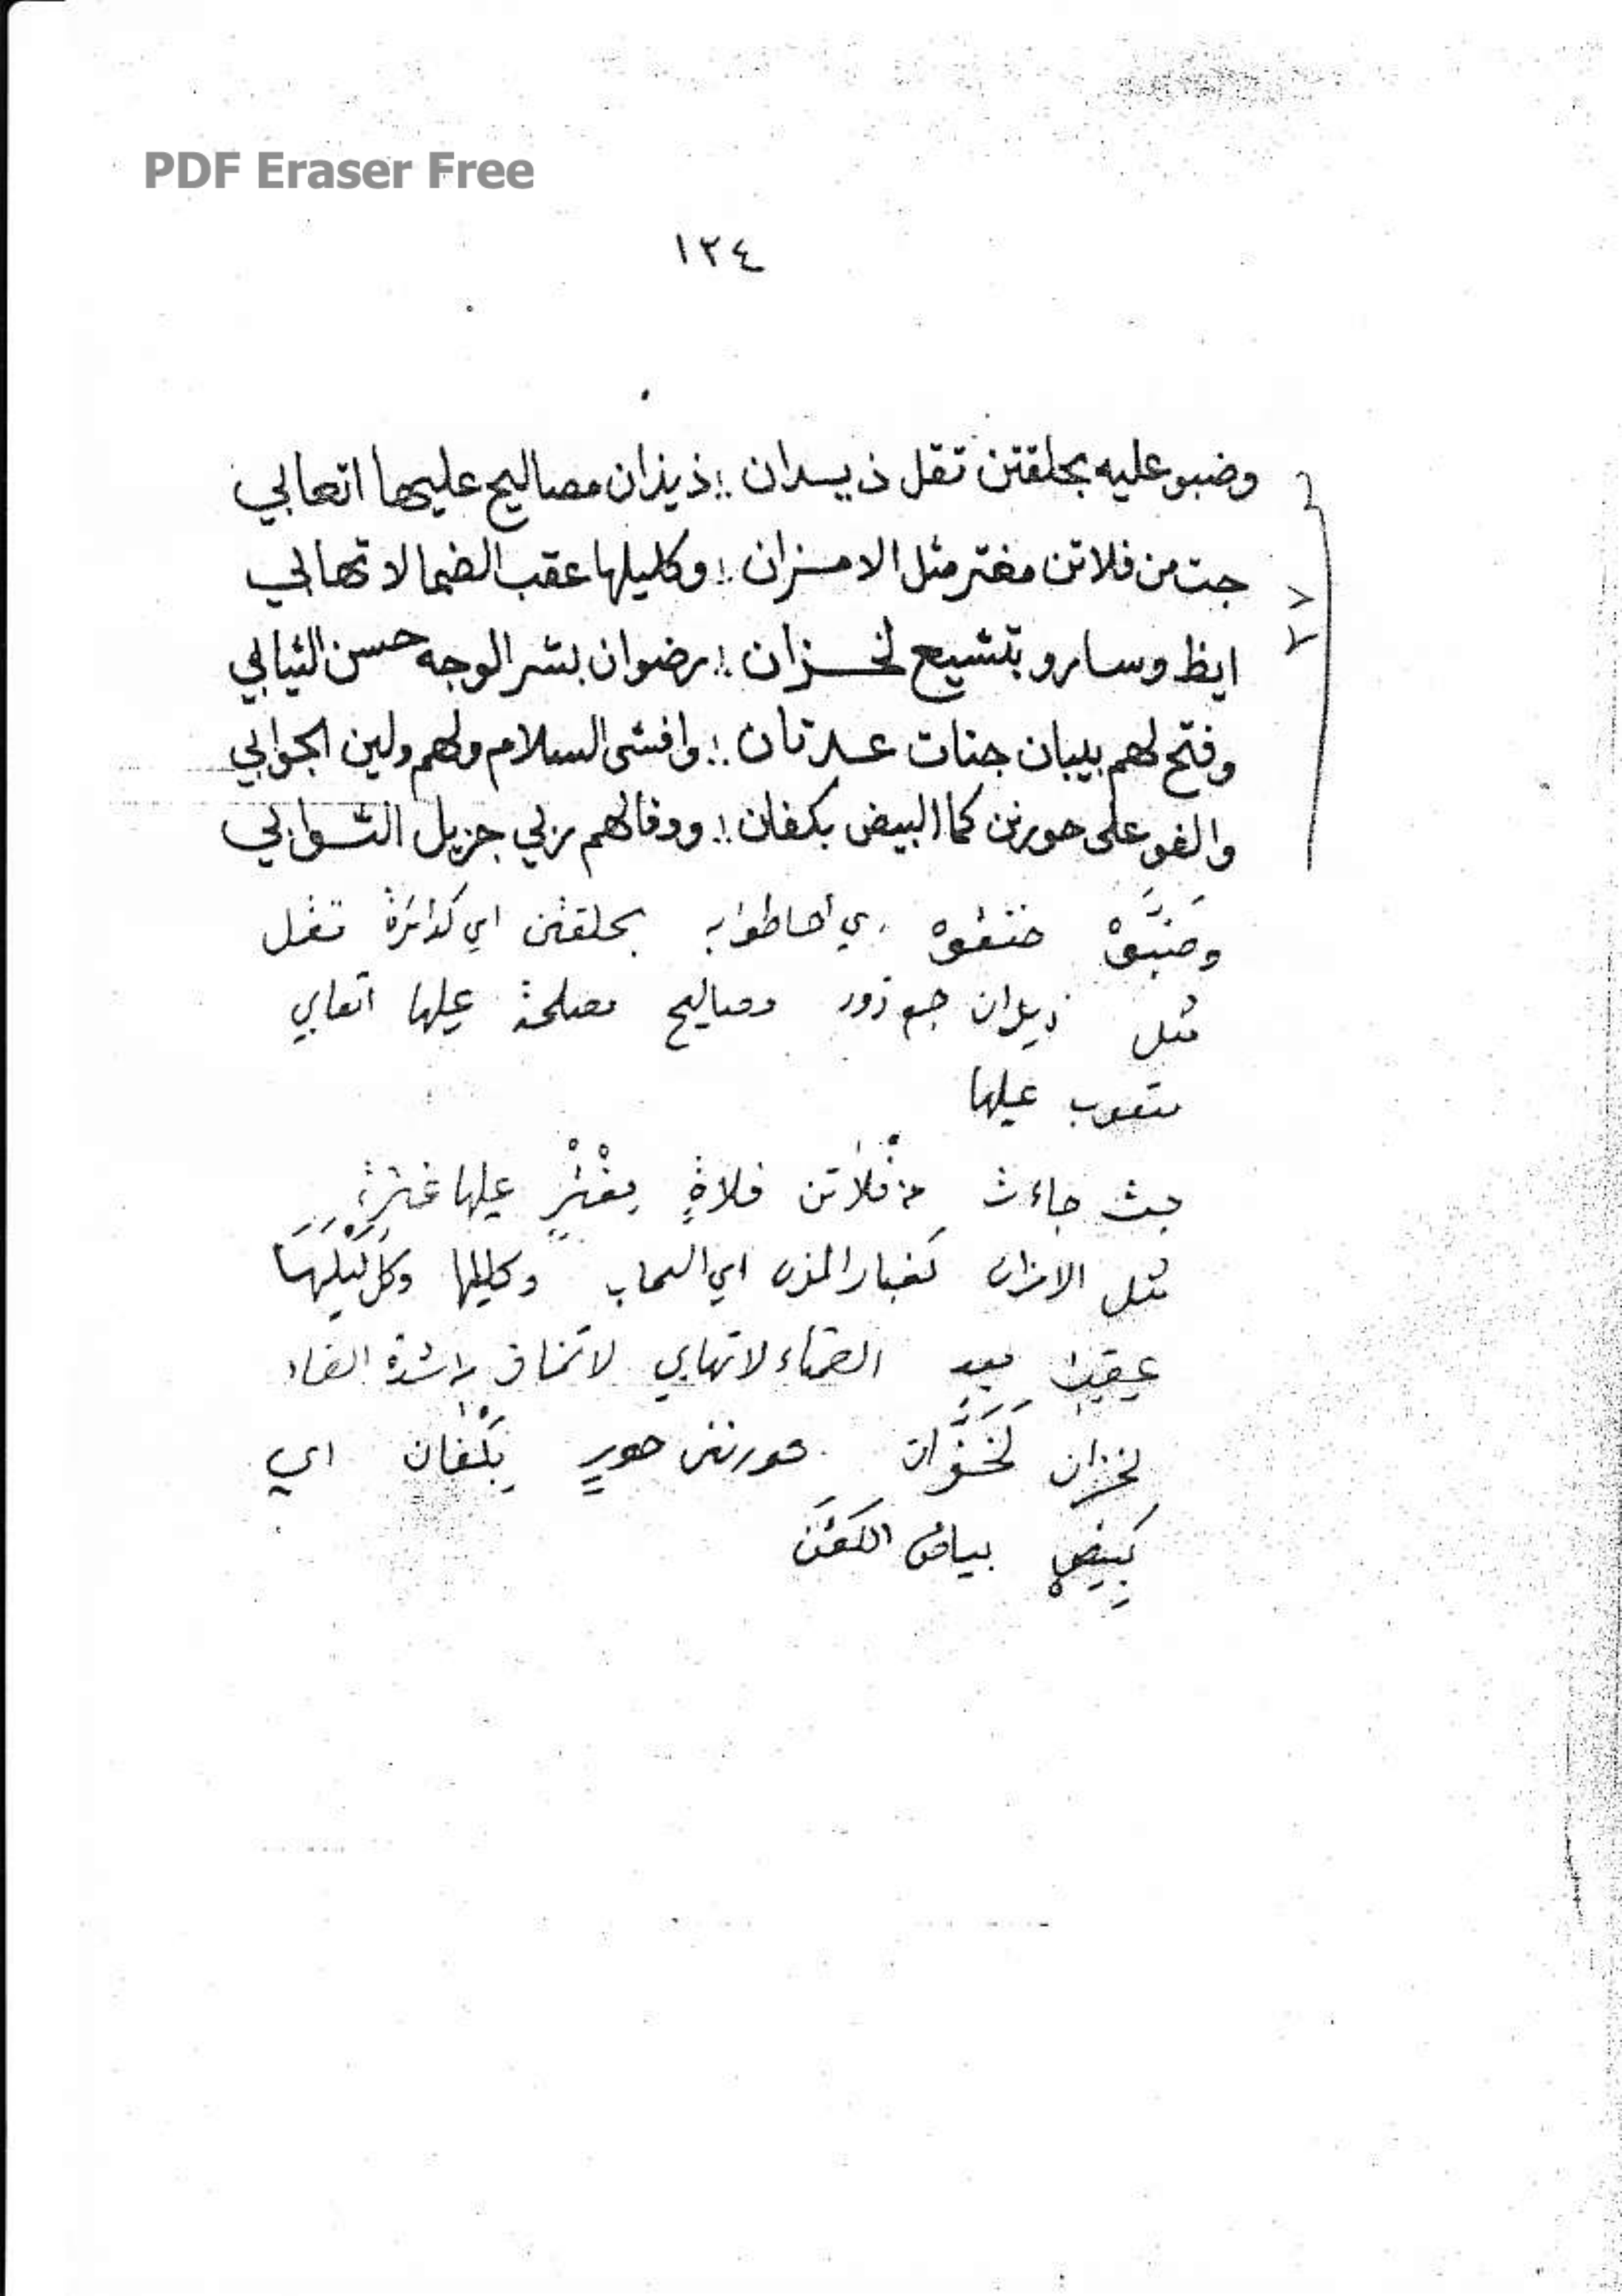 PDF Eraser Free
١٢٤
وضبو عليه بحلقتن تقل ذيـدان :: ذيذان مصاليح عليها اتعابي
جت من فلاتن مغتر مثل الامـزان :: وكليلها عقب الضما لا تهابي
ايظ وسارو بتشيع لخـزان :: رضوان بشر الوجه حسن الثيابي
وفتح لهم بيبان جنات عـدنان :: وافشى السلام ولهم ولين الجوابي
والفو على حورنن كما البيض بكفان :: ووفالهم ربي جزيل الثـوابي
وضَبَّوْ خنقوه اي احاطوا به بحلقتن اي كدائرة تقل
مثل ذيدان جمع زور مصاليح مصلحة عليها اتعابي
متعوب عليها
جث جاءت من فلاتن فلاةٍ مغترٍ عليها غترة
مثل الامزان كغبار المزن اي السحاب وكليلها وكَلِيْلَهَا
عقب بعد الضماء لا تهابي لا تخاف شدة
لخزان لَخَزَّان حورنن حورٍ بكْفان اي
كبيض بياض الكفن